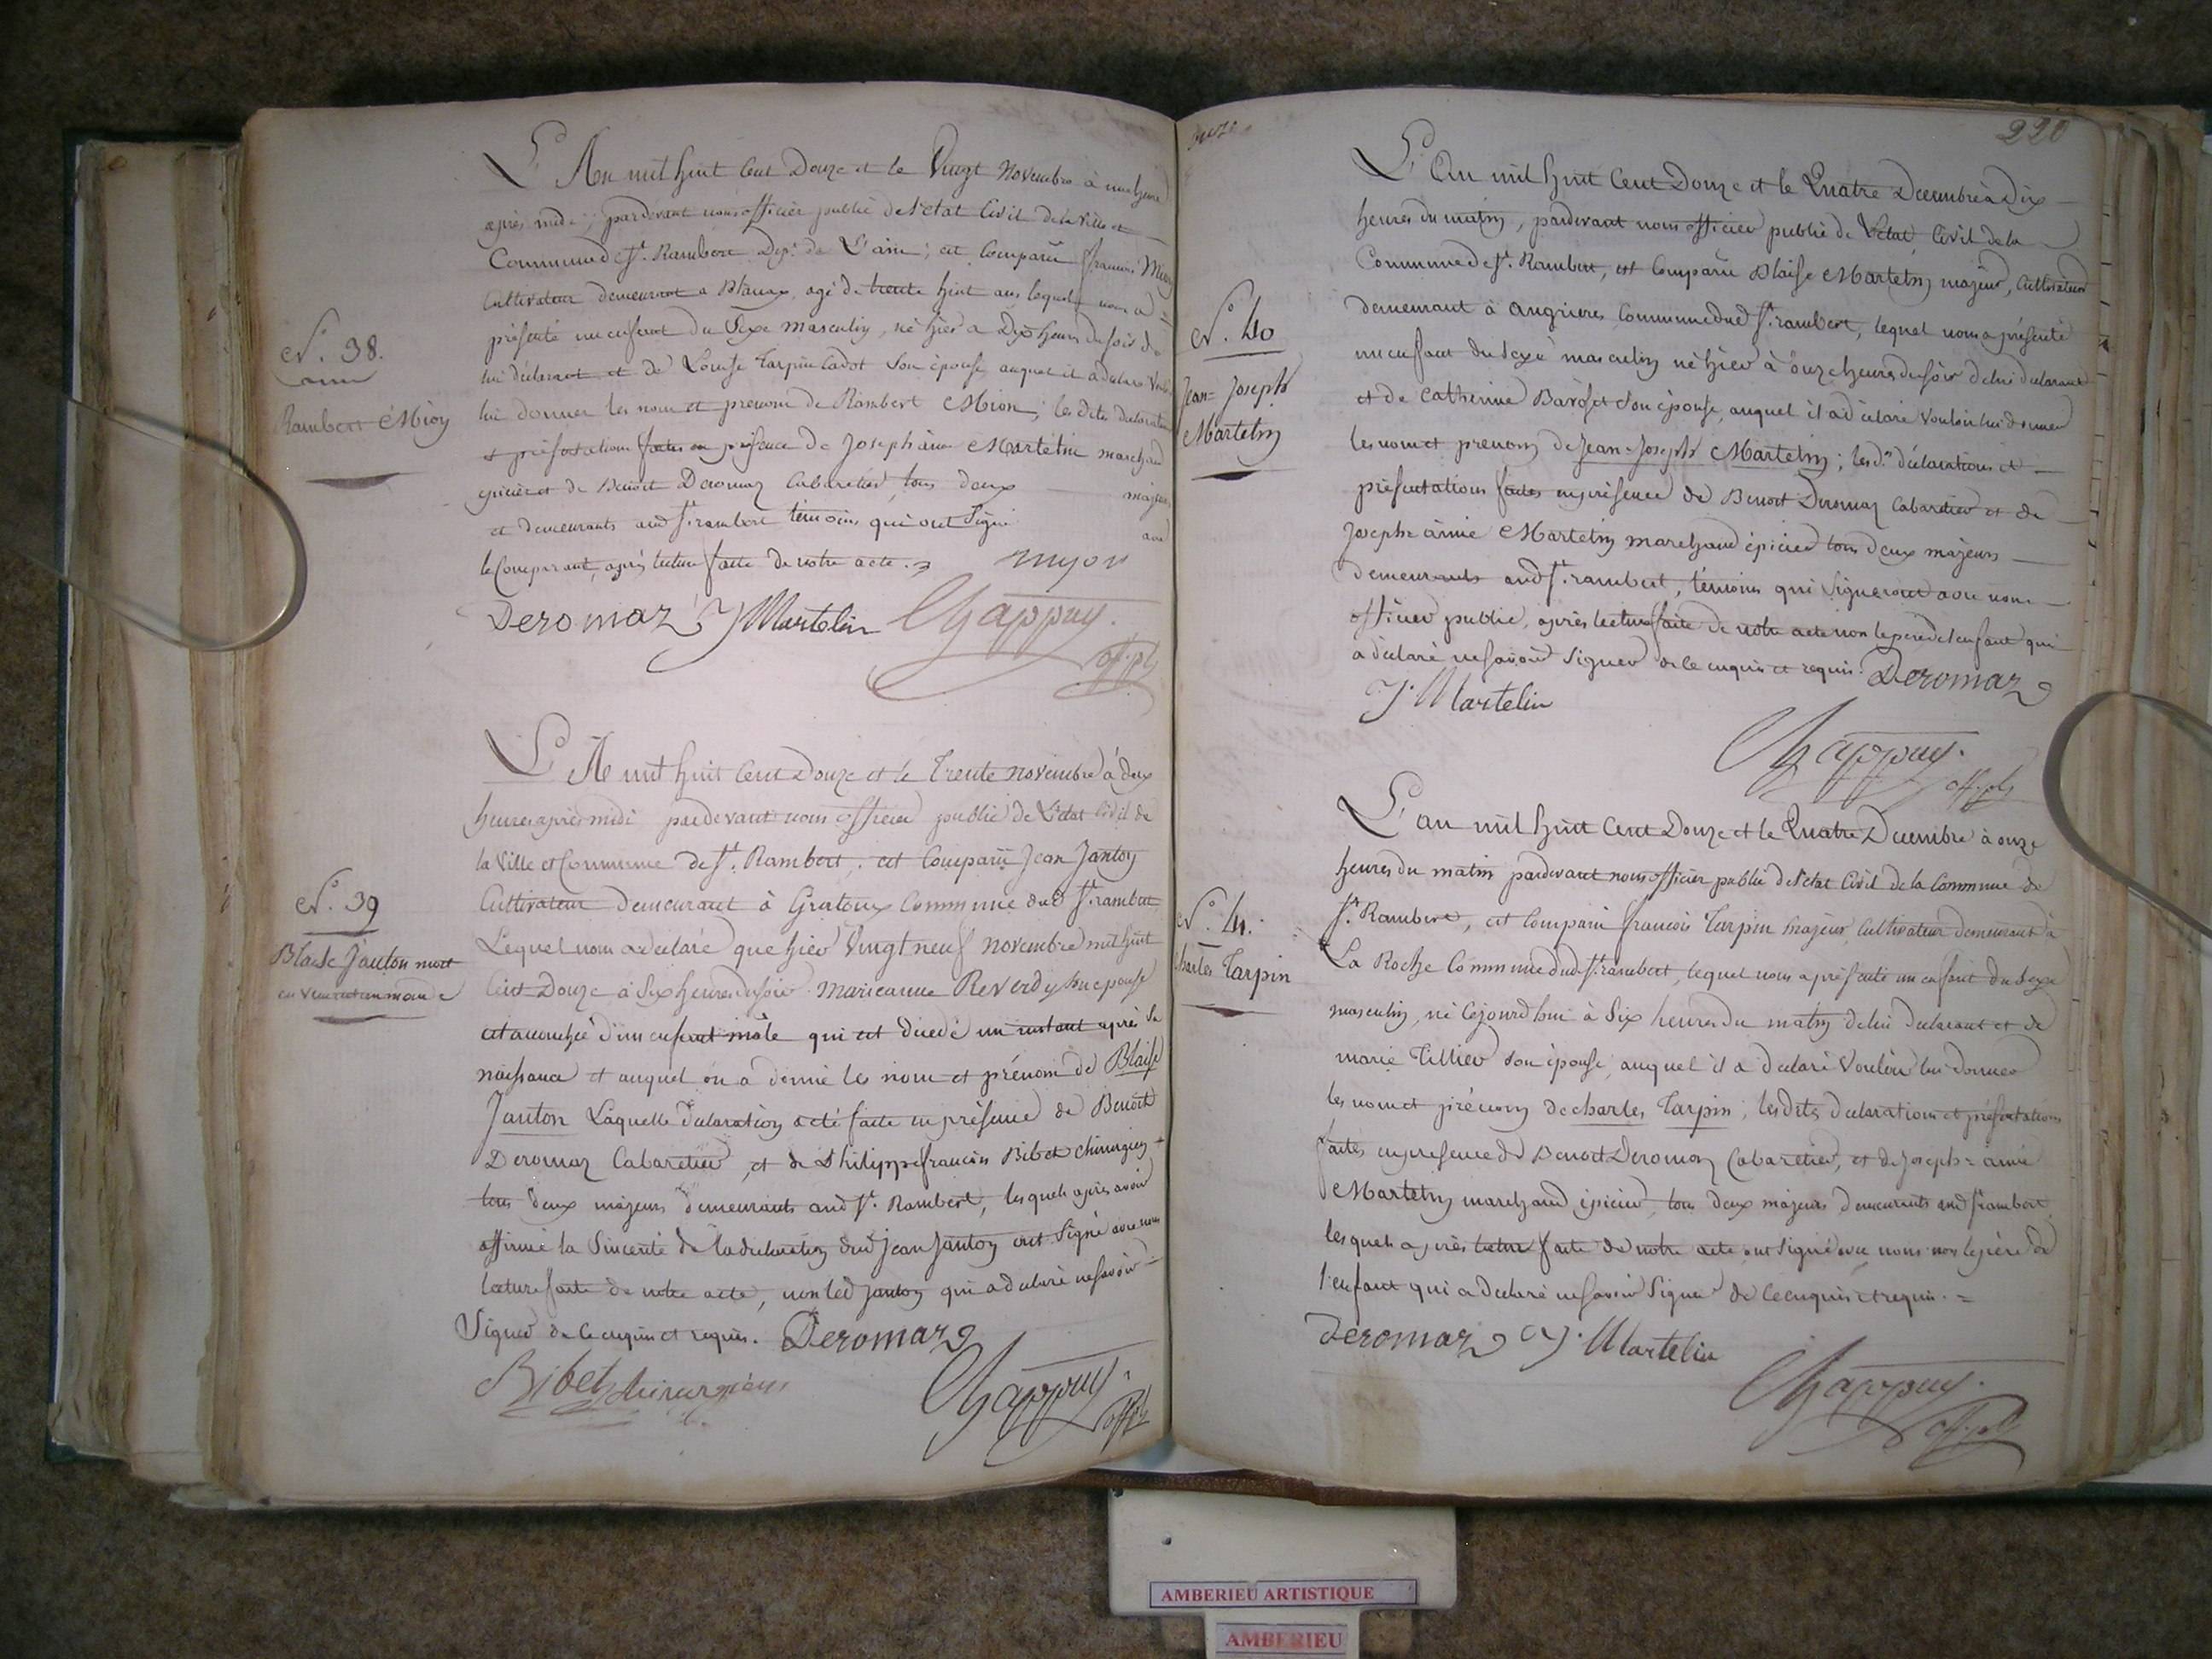 N.° 38.
Rambert Mion
L'An mil huit Cent Douze et le Vingt Novembre à une heure
après midi, pardevant nous officier public de l'etat Civil de la Ville et
Commune de St. Rambert Dép.t de L'ain; est Comparû francois Mion
Cultivateur demeurant a Blanaz, agé de trente huit ans lequel nous a
présenté un enfant du Sexe masculin, né hier a Dix heures du soir de
lui déclarant et de Louise Tarpin Cadot Son épouse auquel il a déclaré Vouloir
lui donner les nom et prenom de Rambert Mion; les dites declaration
et présentation faites en présence de Joseph aimé Martelin marchand
épicier et de Benoit Deromaz Cabaretier, tous deux majeurs
et demeurants aud St. rambert témoins qui ont Signé avec
le Comparant, après lecture faite de notre acte.
myon
Deromaz J Martelin Chappuy.
off. pb
N.° 39
Blaise Janton mort
en venant au monde
L'An mil huit Cent Douze et le Trente novembre à deux
heures après midi pardevant nous officier public de L'état Civil de
la Ville et Commune de St. Rambert, est Comparû Jean Janton
Cultivateur Demeurant à Gratoux Commune dud St. rambert
Lequel nous a declaré que hier Vingt neuf novembre mil huit
Cent Douze à Six heures du soir Marieanne Reverdy son epouse
est accouchée d'un enfant mâle qui est décédé un instant après Sa
naissance et auquel on a donné les nom et prénom de Blaise
Janton Laquelle déclaration a été faite en présence de Benoit
Deromaz Cabaretier, et de Philippe francois Bibet chirurgien
tous deux majeurs demeurants aud St. Rambert, lesquels après avoir
affirmé la Sincerité de la declaration dud Jean Janton ont Signé avec nous
lecture faite de notre acte, non led Janton qui a declaré ne savoir
Signer de ce enquis et requis. Deromaz
Bibet chirurgien
Chappuy.
off. pb
220
N.° 40
Jean=Joseph
Martelin
L'An mil huit Cent Douze et le Quatre Decembre à Dix
heures du matin, pardevant nous officier public de L'etat Civil de la
Commune de St. Rambert, est Comparû Blaise Martelin majeur, Cultivateur
demeurant à angrieres Commune dud St. rambert, lequel nous a présenté
un enfant du Sexe masculin né hier à onze heures du soir de lui declarant
et de Catherine Baroset son épouse, auquel il a déclaré vouloir lui donner
les nom et prenom de Jean=Joseph Martelin; les d.es déclarations et
présentations faites en présence de Benoit Deromaz Cabaretier et de
Joseph=aimé Martelin marchand épicier tous deux majeurs
demeurants aud St. rambert, témoins qui Signeront avec nous
officier public, après lecture faite de notre acte non le pere de l'enfant qui
a déclaré ne savoir Signer de ce enquis et requis. Deromaz
J. Martelin
Chappuy.
off. pb
N.° 41.
Charles Tarpin
L'an mil huit Cent Douze et le Quatre Decembre à onze
heures du matin pardevant nous officier public de l'etat Civil de la Commune de
St. Rambert, est Comparû francois Tarpin majeur Cultivateur demeurant à
La Roche Commune dud St. rambert, lequel nous a présenté un enfant du Sexe
masculin, né Cejourd'hui à Six heures du matin de lui declarant et de
marie Tillier Son épouse, auquel il a déclaré Vouloir lui donner
les nom et prénom de charles Tarpin; les dites déclarations et présentations
faites en presence de Benoit Deromaz Cabaretier, et de Joseph=aimé
Martelin marchand épicier, tous deux majeurs demeurants aud St. rambert,
lesquels après lecture faite de notre acte ont Signé avec nous non le père de
l'enfant qui a declaré ne savoir Signer de ce enquis et requis.=
Deromaz J. Martelin
Chappuy.
off. pb
AMBERIEU ARTISTIQUE
AMBERIEU